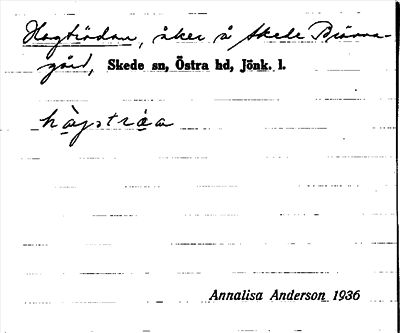 Hagträdan, åker å Skede Norra-
gård, Skede sn, Östra hd, Jönk. l.
hàgstráa
Annalisa Anderson 1936